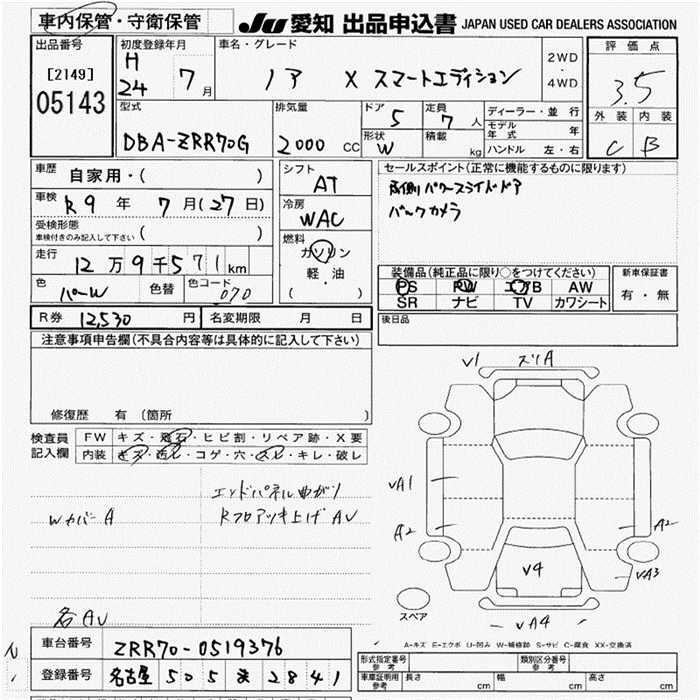 車内保管・守衛保管 JU 愛知 出品申込書 JAPAN USED CAR DEALERS ASSOCIATION
出品番号
[2149]
05143
初度登録年月
H
24 7月
車名・グレード
ノア X スマートエディション
2WD
・
4WD
評価点
3.5
外装 内装
C B
型式
DBA-ZRR70G
排気量
2000 CC
ドア 5
形状 W
定員 7人
積載 kg
ディーラー・並行
モデル年式 年
ハンドル 左・右
車歴 自家用・( )
車検 R9年 7月(27日)
受検形態
車検付きのみ記入して下さい ( )
走行 12万9千571km
色 パールW 色替 色コード 070
シフト
AT
冷房
WAC
燃料
ガソリン
軽・油
( )
セールスポイント(正常に機能するものに限ります)
両側パワースライドドア
バックカメラ
装備品(純正品に限り○をつけてください)
PS PW エアB AW
SR ナビ TV カワシート
新車保証書
有・無
R券 12,530円 名変期限 月 日
後日品
注意事項申告欄(不具合内容等は具体的に記入して下さい)
修復歴 有(箇所 )
検査員
記入欄
FW キズ・飛石・ヒビ割・リペア跡・X要
内装 キズ・汚レ・コゲ・穴・スレ・キレ・破レ
エンドパネル曲がり
Wカバー A Rフロアツキ上げ AV
各AV
V1 スリA
VA1
A2 A2
V4 VA3
VA4
スペア
A-キズ E-エクボ U-凹み W-補修跡 S-サビ C-腐食 XX-交換済
車台番号 ZRR70-0519376
登録番号 名古屋 505 2841
型式指定番号
参考
類別区分番号
参考
車庫証明用
参考
長さ cm 幅 cm 高さ cm